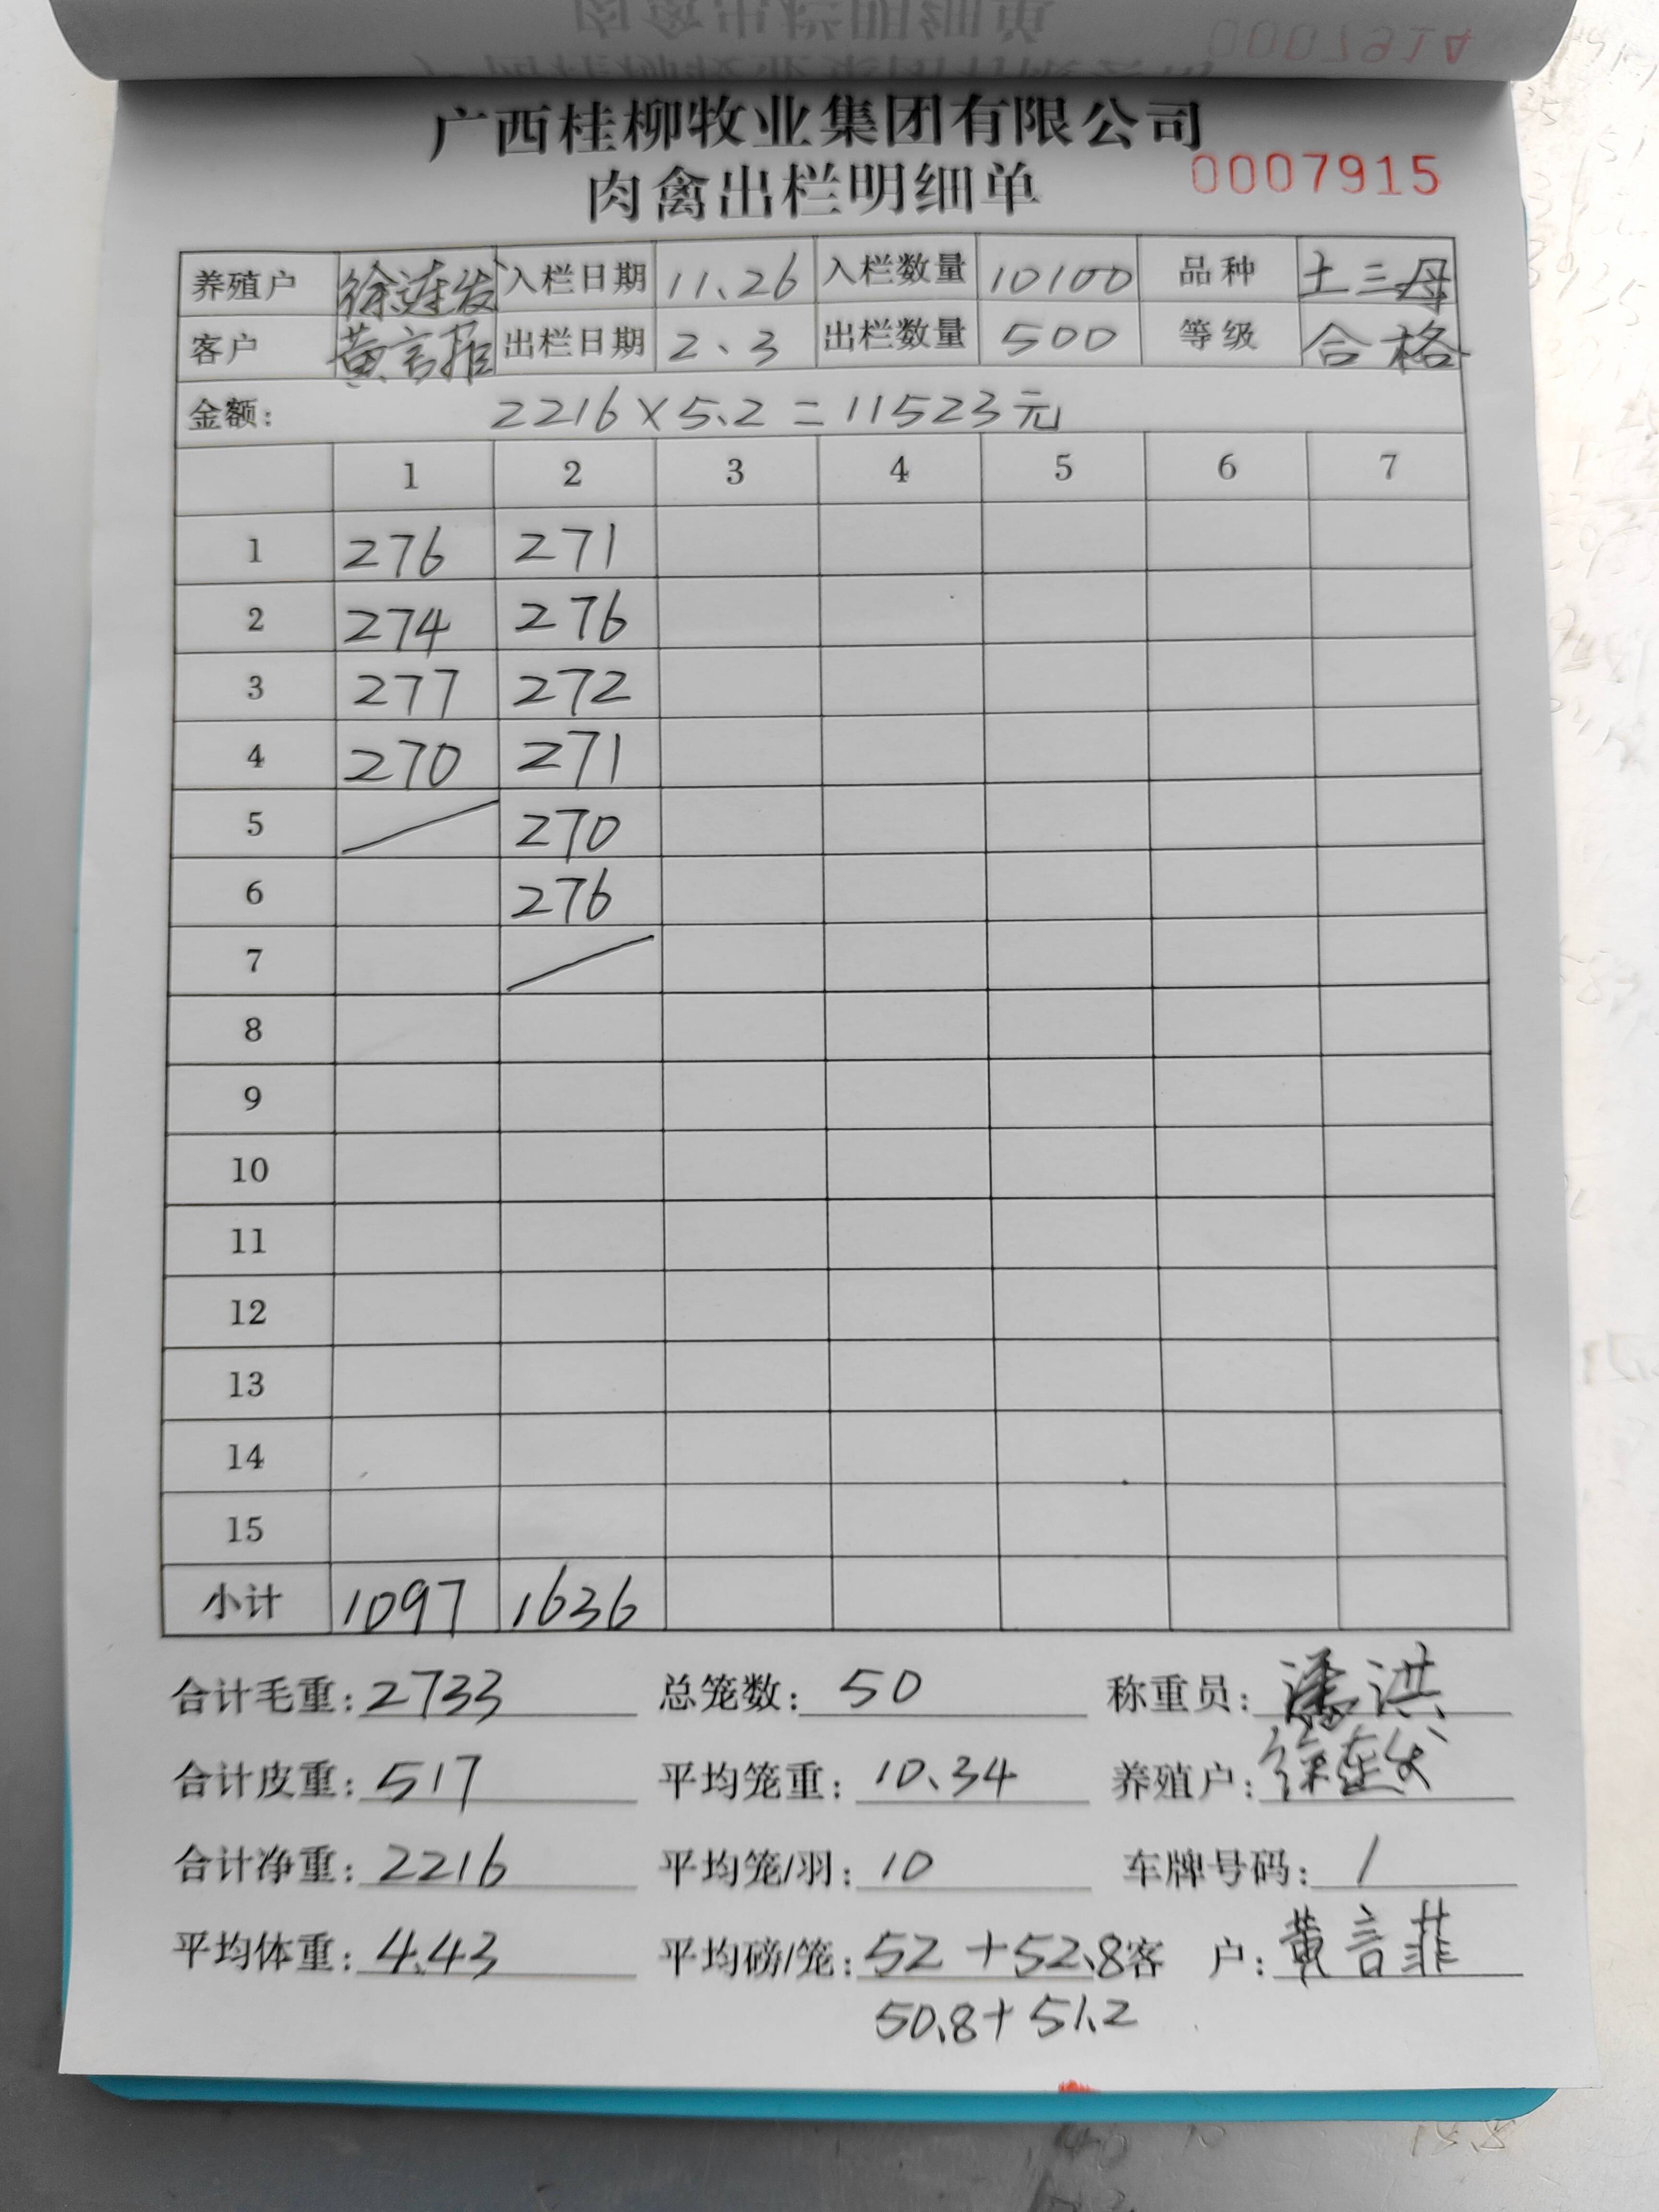 广西桂柳牧业集团有限公司
肉禽出栏明细单
0007915
养殖户 徐莲发 入栏日期 11.26 入栏数量 10100 品种 土三母
客户 黄言 出栏日期 2.3 出栏数量 500 等级 合格
金额: 2216×5.2=11523元
1 2 3 4 5 6 7
1 276 271
2 274 276
3 277 272
4 270 271
5 270
6 276
7
8
9
10
11
12
13
14
15
小计 1097 1636
合计毛重:2733 总笼数:50 称重员:潘洪
合计皮重:517 平均笼重:10.34 养殖户:徐莲发
合计净重:2216 平均笼/羽:10 车牌号码:/
平均体重:4.43 平均磅/笼:52+52.8 客户:黄言菲
50.8+51.2